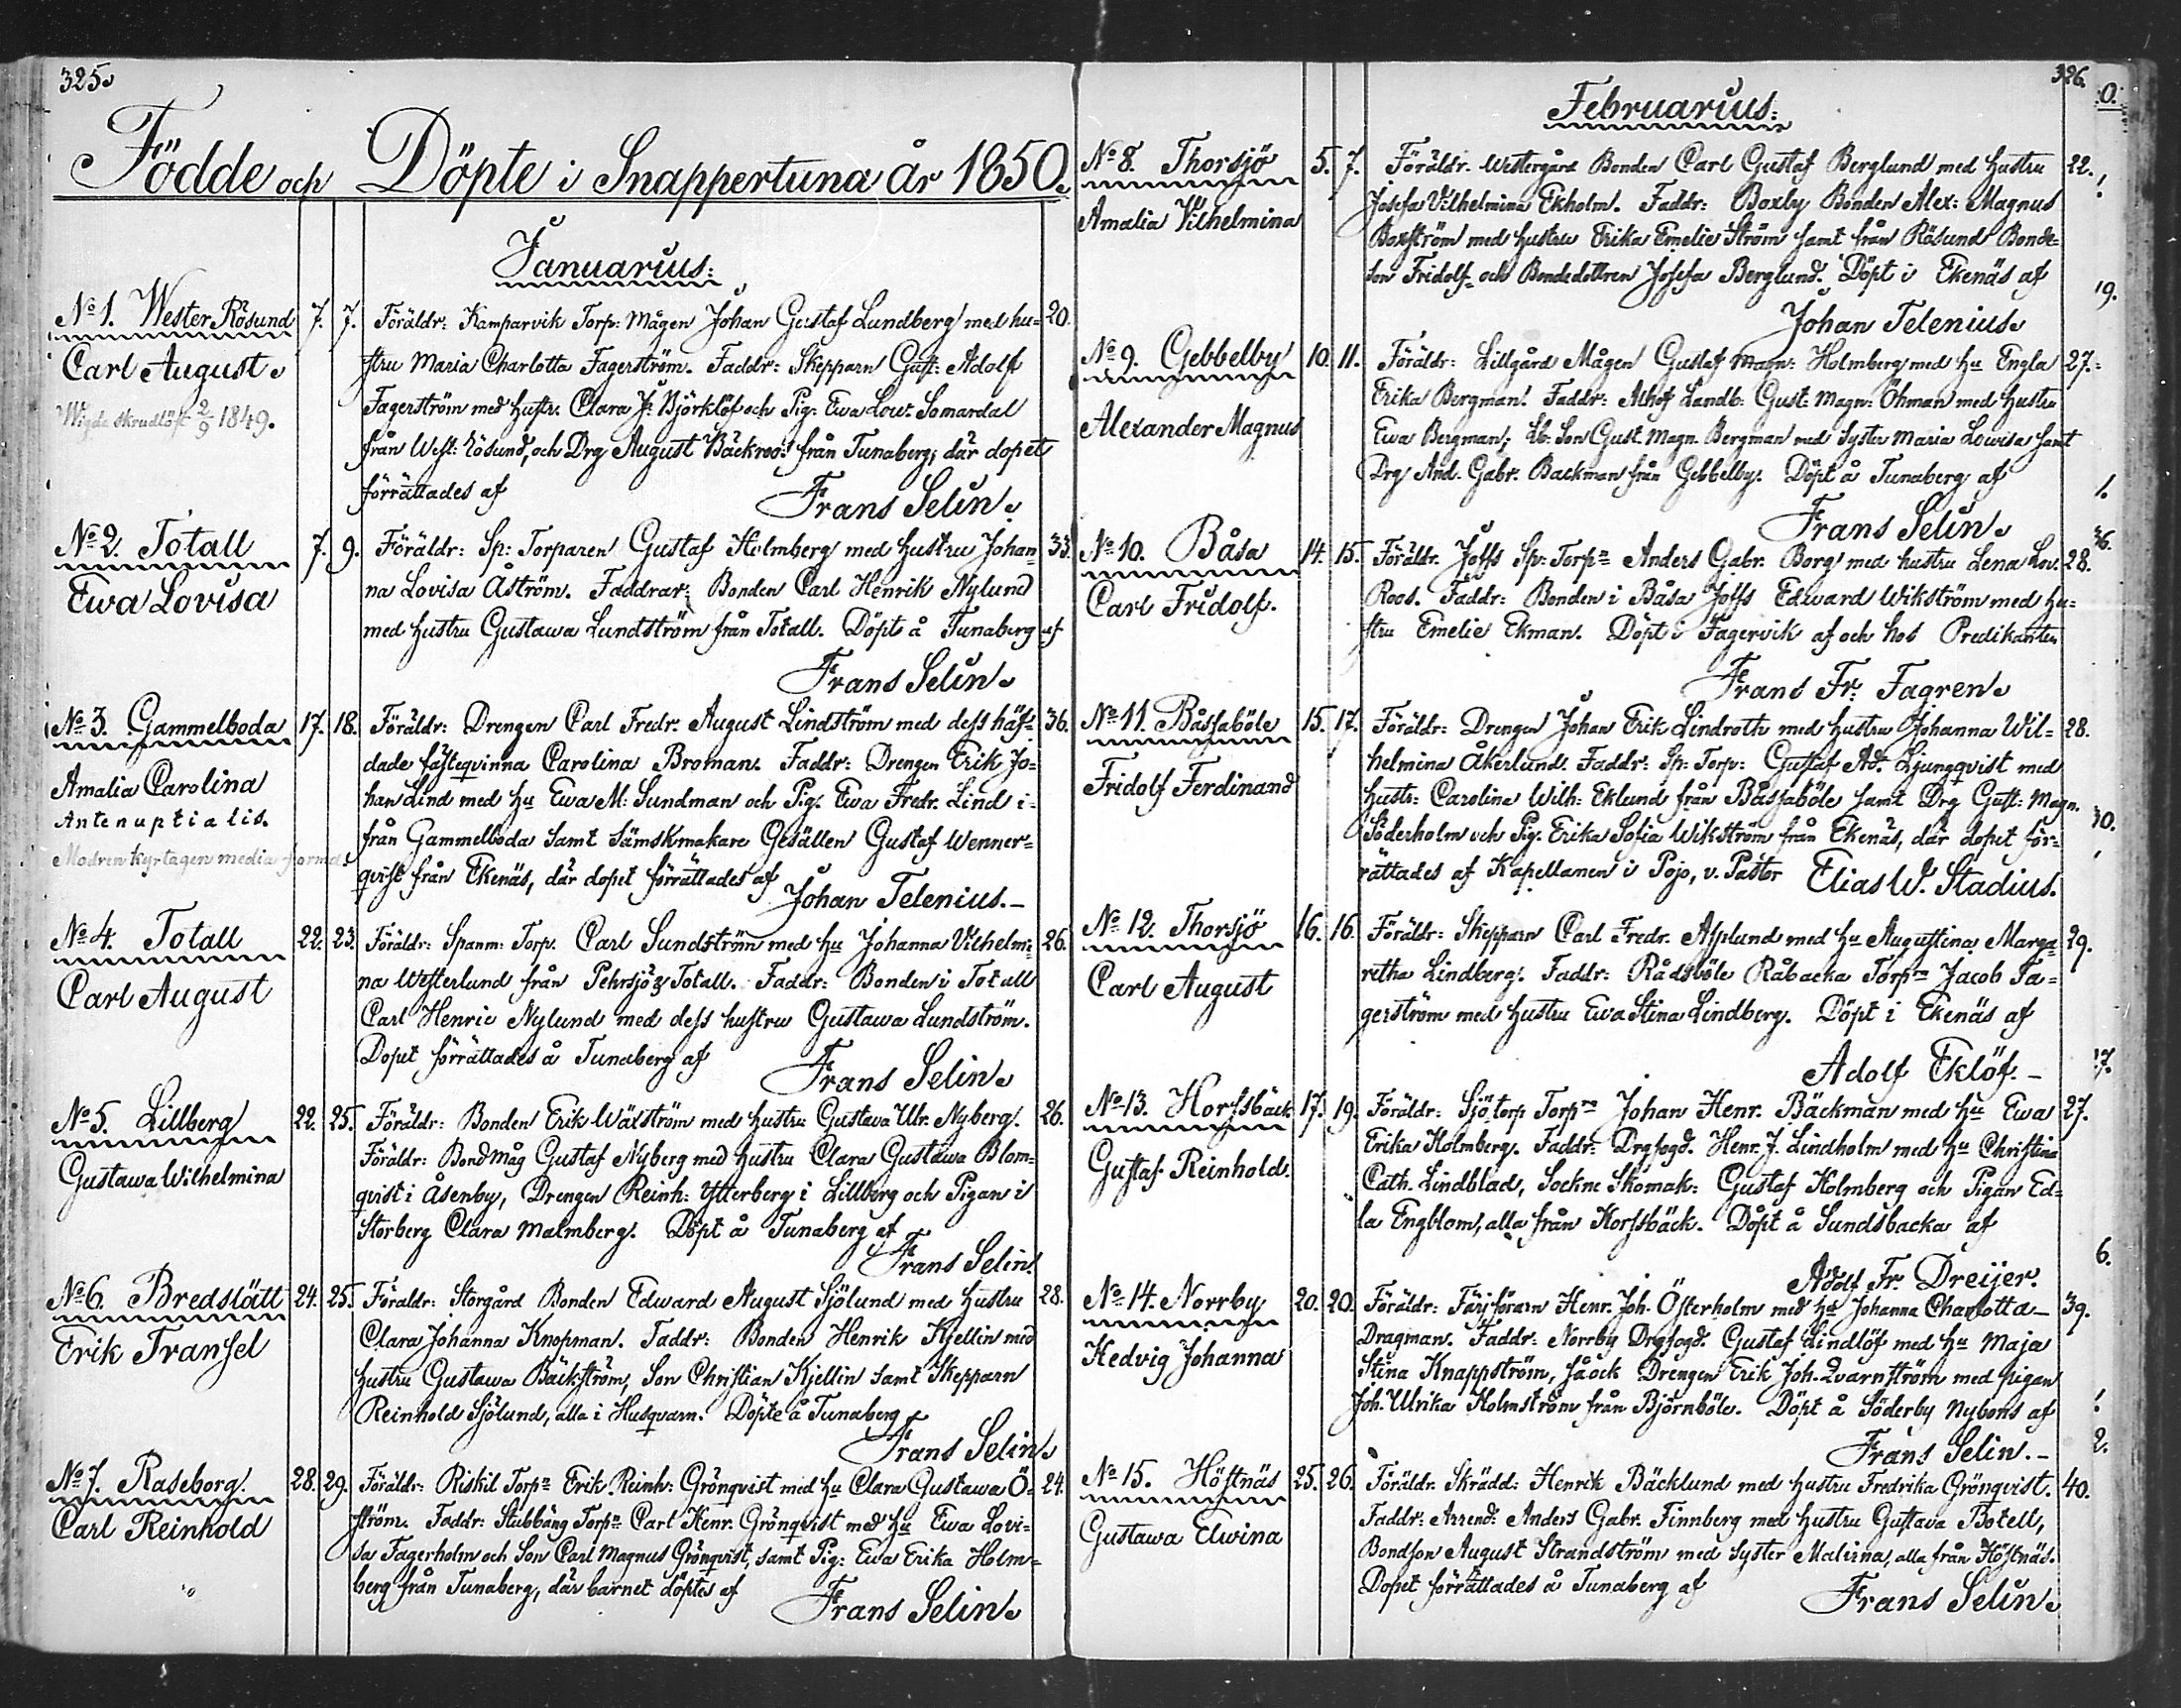 325.
Födde och Döpte i Snappertuna år 1850.
Januarius:
No 1. Wester Rösund 7. 7. Föräldr: Kamparvik Torp: Mågen Johan Gustaf Lundberg med hu= 20.
Carl August. stru Maria Charlotta Fagerström. Faddr: Skepparn Gust: Adolf
Wigda skrudlöst 2/9 1849. Fagerström med hustr. Clara J: Björklöf och Pig: Ewa Low: Somardal
från West: Rösund, och Drg August Bäckroo: från Tunaberg; där dopet
förrättades af Frans Selin.
No 2. Totall 7. 9. Föräldr: Sp: Torparen Gustaf Holmberg med hustru Johan= 33.
Ewa Lovisa na Lovisa Åström. Faddrar: Bonden Carl Henrik Nylund
med hustru Gustawa Lundström från Totall. Döpt å Tunaberg af
Frans Selin.
No 3. Gammelboda 17. 18. Föräldr: Drengen Carl Fredr. August Lindström med dess häf= 36.
Amalia Carolina dade fästeqvinna Carolina Broman. Faddr: Drengen Erik Jo=
Antenuptialis. han Lind med Hu Ewa M: Sundman och Pig. Ewa Fredr. Lind i=
Modren kyrtagen media forma. från Gammelboda samt Sämskmakare Gesällen Gustaf Wenner=
qvist från Ekenäs, där dopet förrättades af Johan Telenius.
No 4. Totall 22. 23. Föräldr: Spanm: Torp. Carl Sundström med Hu Johanna Vilhelmi= 26.
Carl August na Westerlund från Pehrsjö Totall. Faddr: Bonden i Totall
Carl Henric Nylund med dess hustru Gustawa Lundström.
Dopet förrättades å Tunaberg af Frans Selin.
No 5. Lillberg 22. 25. Föräldr: Bonden Erik Wäxström med hustru Gustava Ulr. Nyberg. 26.
Gustawa Wilhelmina Föräldr: Bondmåg Gustaf Nyberg med hustru Clara Gustawa Blom=
qvist i Åsenby, Drengen Reinh: Ytterberg i Lillberg och Pigan i
Storberg Clara Malmberg. Döpt å Tunaberg af
Frans Selin.
No 6. Bredslätt 24. 25. Föräldr: Storgård Bonden Edward August Sjölund med hustru 28.
Erik Fransel Clara Johanna Knopman. Faddr: Bonden Henrik Kjellin med
hustru Gustawa Bäckström, Son Christian Kjellin samt Skepparn
Reinhold Sjölund, alla i Husqvarn. Döpte å Tunaberg
Frans Selin.
No 7. Raseborg. 28. 29. Föräldr: Riskil Torpn Erik Reinh: Grönqvist med Hu Clara Gustawa Ö= 24.
Carl Reinhold ström. Faddr: Stubbäng Torpn Carl Henr. Grönqvist med Hu Ewa Lovi=
sa Fagerholm och Son Carl Magnus Grönqvist, samt Pig: Ewa Erika Holm=
berg från Tunaberg, där barnet döptes af Frans Selin.
326.
Februarius:
No 8. Thorsjö 5. 7. Föräldr. Westergård Bonden Carl Gustaf Berglund med hustru 22.
Amalia Vilhelmina Josefa Vilhelmina Ekholm. Faddr: Boxby Bonden Alex: Magnus
Boxström med hustru Erika Emelie Ström samt från Räsund Bonde=
son Fridolf och Bondedottren Josefa Berglund. Döpt i Ekenäs af
Johan Telenius.
No 9. Gebbelby 10. 11. Föräldr: Lillgård Mågen Gustaf Magn: Holmberg med Hu Engla 27.
Alexander Magnus Erika Bergman. Faddr: Alhof Landb: Gust: Magn: Öhman med hustru
Ewa Bergman; Lb. Son Gust Magn. Bergman med syster Maria Lowisa samt
Drg And. Gabr. Backman från Gebbelby. Döpt å Tunaberg af
Frans Selin.
No 10. Båsa 14. 15. Föräldr. Joffs Sp: Torpn Anders Gabr. Borg med hustru Lena Lov. 28.
Carl Fridolf. Roos. Faddr: Bonden i Båsa Joffs Edward Wikström med hu=
stru Emelie Ekman. Döpt i Fagervik af och hos Predikanten
Frans Fr: Fagren.
No 11. Båssaböle 15. 17. Föräldr: Drengen Johan Erik Lindroth med hustru Johanna Wil= 28.
Fridolf Ferdinand helmina Åkerlund. Faddr: Sp: Torp: Gustaf Ad. Ljungqvist med
hustr: Carolina Wilh: Eklund från Båssaböle samt Drg Gust: Magn.
Söderholm och Pig. Erika Sofia Wikström från Ekenäs, där dopet för=
rättades af Kapellanen i Pojo, v. Pastor Elias W. Stadius.
No 12. Thorsjö 16. 16. Föräldr: Skepparn Carl Fredr. Asplund med Hu Augustina Marga= 29.
Carl August retha Lindberg. Faddr: Rådsböle Råbacka Torpn Jacob Fa=
gerström med hustru Ewa Stina Lindberg. Döpt i Ekenäs af
Adolf Eklöf.
No 13. Horssbäck 17. 19. Föräldr: Sjötorp Torpn Johan Henr. Bäckman med Hu Ewa 27.
Gustaf Reinhold. Erika Holmberg. Faddr: Drgfogd. Henr. J. Lindholm med Hu Christina
Cath. Lindblad, Sockne Skomak: Gustaf Holmberg och Pigan Ed=
la Engblom, alla från Horssbäck. Döpt å Sundsbacka af
Adolf Fr. Dreijer.
No 14. Norrby 20. 20. Föräldr: Färjförarn Henr. Joh. Österholm med Hu Johanna Charlotta 39.
Hedvig Johanna Dragman. Faddr: Norrby Drgfogd. Gustaf Lindlöf med Hu Maja
Stina Knappström, så ock Drengen Erik Joh. Qvarnström med pigan
Joh. Ulrika Holmström från Björnböle. Döpt å Söderby Nybons af
Frans Selin.
No 15. Höstnäs 25. 26. Föräldr. Skrädd: Henrik Bäcklund med hustru Fredrika Grönqvist. 40.
Gustawa Elwina Faddr: Arrend: Anders Gabr. Finnberg med hustru Gustava Botell,
Bondson August Strandström med syster Malvina, alla från Höstnäs.
Dopet förrättades å Tunaberg af Frans Selin.